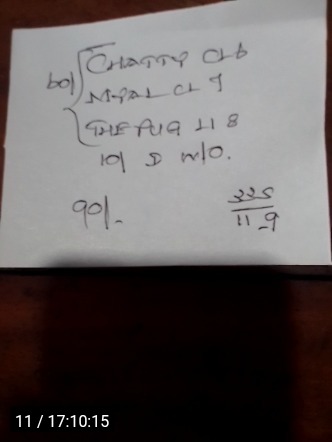 60/ { CHATTY CL 6
MYAL CL 9
THE AUG 11 8
10/ D W/O.
90/-
325
11-9
11 / 17:10:15